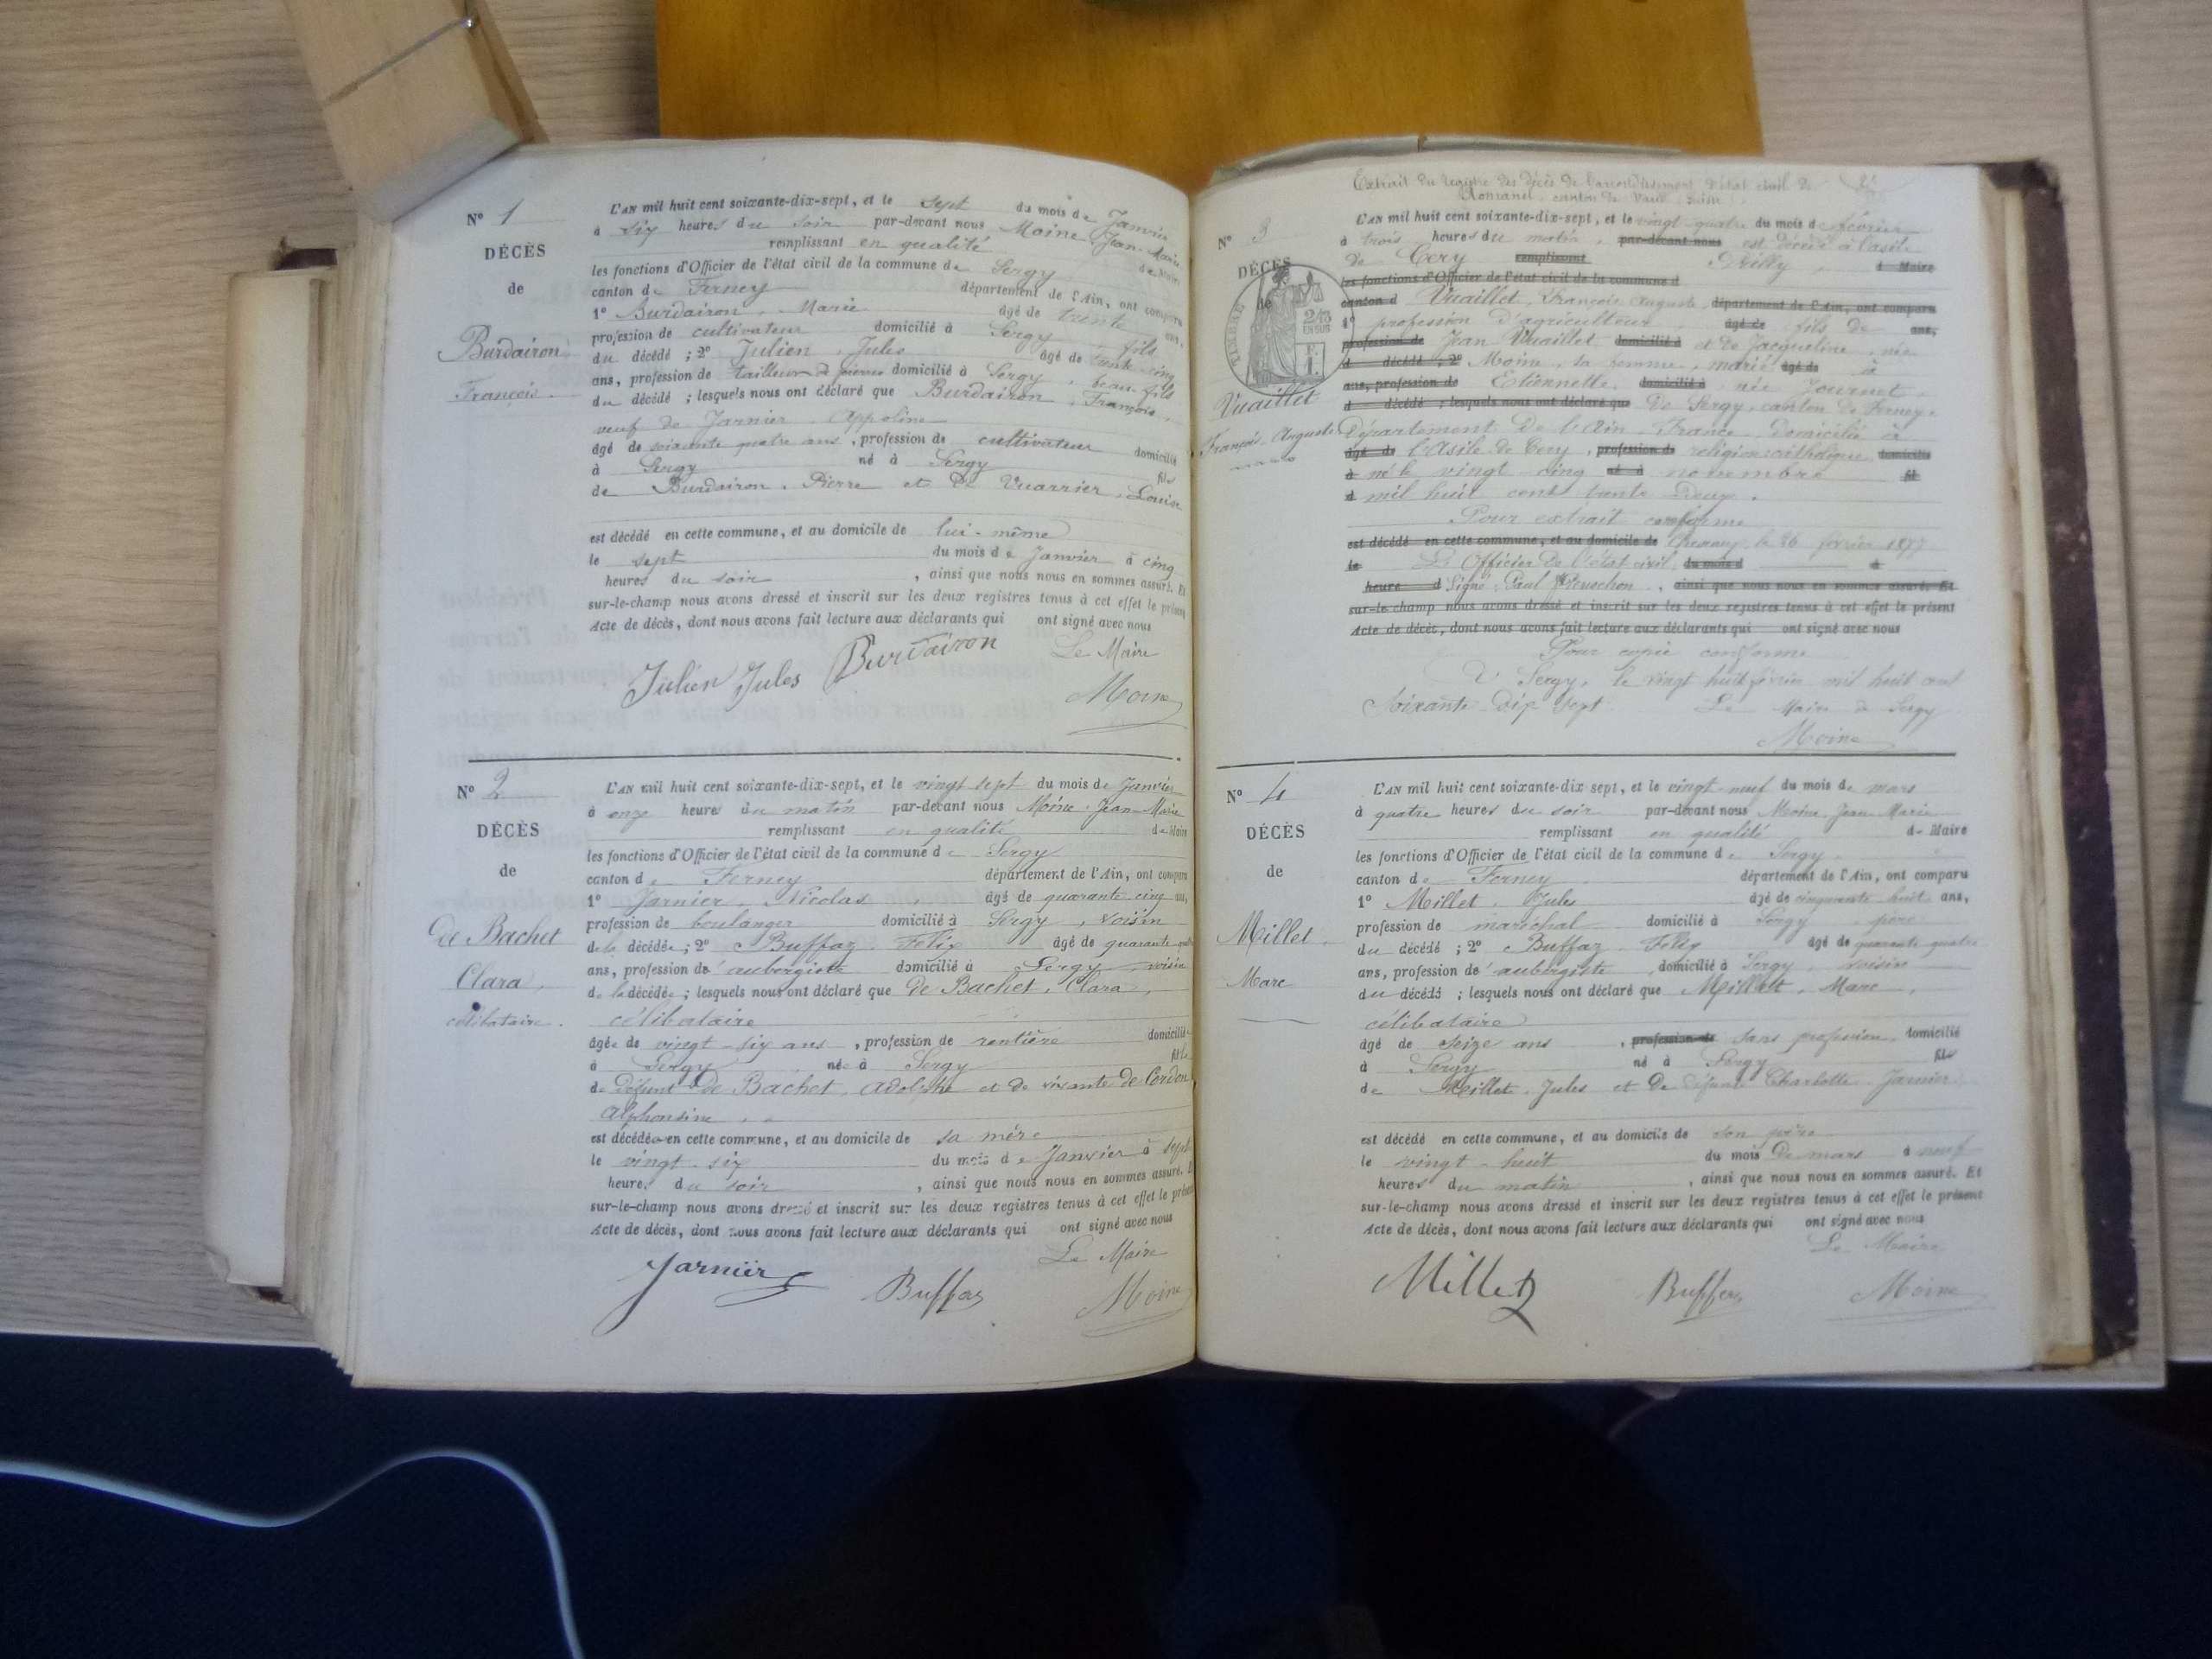 N° 1
DÉCÈS
de
Burdairon
François.
L'AN mil huit cent soixante-dix-sept, et le sept du mois de Janvier
à six heures du soir par-devant nous Moine Jean-Marie
remplissant en qualité de Maire
les fonctions d'Officier de l'état civil de la commune de Sergy
canton de Ferney département de l'Ain, ont comparu
1° Burdairon, Marie âgé de trente ans,
profession de cultivateur domicilié à Sergy fils
du décédé ; 2° Julien, Jules âgé de trente cinq
ans, profession de tailleur de pierre domicilié à Sergy, beau-fils
du décédé ; lesquels nous ont déclaré que Burdairon, François,
veuf de Jarnier, Appoline
âgé de soixante quatre ans, profession de cultivateur domicilié
à Sergy né à Sergy fils
de Burdairon, Pierre et de Vuarrier, Louise
est décédé en cette commune, et au domicile de lui-même
le sept du mois de Janvier à cinq
heures du soir, ainsi que nous nous en sommes assuré. Et
sur-le-champ nous avons dressé et inscrit sur les deux registres tenus à cet effet le présent
Acte de décès, dont nous avons fait lecture aux déclarants qui ont signé avec nous
Le Maire
Julien Jules Burdairon
Moine
N° 2
DÉCÈS
de
de Bachet
Clara,
célibataire.
L'AN mil huit cent soixante-dix-sept, et le vingt sept du mois de Janvier
à onze heures du matin par-devant nous Moine Jean-Marie
remplissant en qualité de Maire
les fonctions d'Officier de l'état civil de la commune de Sergy
canton de Ferney département de l'Ain, ont comparu
1° Jarnier, Nicolas, âgé de quarante cinq ans,
profession de boulanger domicilié à Sergy, voisin
de la décédée ; 2° Buffaz, Félix âgé de quarante
ans, profession de aubergiste domicilié à Sergy, voisin
de la décédée ; lesquels nous ont déclaré que de Bachet, Clara,
célibataire
âgée de vingt-six ans, profession de rentière domiciliée
à Sergy née à Sergy fille
de défunt de Bachet, Adolphe et de vivante de Cerdon
Alphonsine
est décédée en cette commune, et au domicile de sa mère
le vingt-six du mois de Janvier à sept
heures du soir, ainsi que nous nous en sommes assuré. Et
sur-le-champ nous avons dressé et inscrit sur les deux registres tenus à cet effet le présent
Acte de décès, dont nous avons fait lecture aux déclarants qui ont signé avec nous
Le Maire
Jarnier Buffaz Moine
Extrait du registre des décès de l'arrondissement d'état civil de
Romanel, canton de Vaud, Suisse
N° 3
DÉCÈS
de
TIMBRE
2/10
EN SUS
F.
1.
Vuaillet
François-Auguste
L'AN mil huit cent soixante-dix-sept, et le vingt-quatre du mois de février
à trois heures du matin, par-devant nous est décédé à l'asile
de Cery remplissant Prilly d Maire
les fonctions d'Officier de l'état civil de la commune d
canton d Vuaillet, François Auguste département de l'Ain, ont comparu
1° profession d'agriculteur âgé de fils de ans,
profession de Jean Vuaillet domicilié à et de Jacqueline, née
d décédé ; 2° Moine, sa femme, marié âgé de à
ans, profession de Etiennette domicilié à née Journet
d décédé ; lesquels nous ont déclaré que De Sergy, canton de Ferney.
Département de l'Ain France Domicilié à
âgé de l'Asile de Cery, profession de religion catholique domicilié
à né le vingt-cinq né à novembre fil
d mil huit cent trente deux.
Pour extrait conforme
est décédé en cette commune, et au domicile de le 26 février 1877
le L'Officier de l'état civil du mois d à
heure d Signé Paul, ainsi que nous nous en sommes assuré. Et
sur-le-champ nous avons dressé et inscrit sur les deux registres tenus à cet effet le présent
Acte de décès, dont nous avons fait lecture aux déclarants qui ont signé avec nous
Pour copie conforme
à Sergy, le vingt huit février mil huit cent
Soixante-dix-sept. Le Maire de Sergy
Moine
N° 4
DÉCÈS
de
Millet
Marc
L'AN mil huit cent soixante-dix sept, et le vingt-neuf du mois de mars
à quatre heures du soir par-devant nous Moine Jean Marie
remplissant en qualité de Maire
les fonctions d'Officier de l'état civil de la commune de Sergy
canton de Ferney département de l'Ain, ont comparu
1° Millet, Jules âgé de cinquante huit ans,
profession de maréchal domicilié à Sergy père
du décédé ; 2° Buffaz, Félix âgé de quarante quatre
ans, profession de aubergiste, domicilié à Sergy voisin
du décédé ; lesquels nous ont déclaré que Millet, Marc,
célibataire
âgé de seize ans, profession de sans profession domicilié
à Sergy né à Sergy fils
de Millet, Jules et de défunte Charlotte Jarnier
est décédé en cette commune, et au domicile de son père
le vingt-huit du mois de mars à neuf
heures du matin, ainsi que nous nous en sommes assuré. Et
sur-le-champ nous avons dressé et inscrit sur les deux registres tenus à cet effet le présent
Acte de décès, dont nous avons fait lecture aux déclarants qui ont signé avec nous
Le Maire
Millet Buffaz Moine